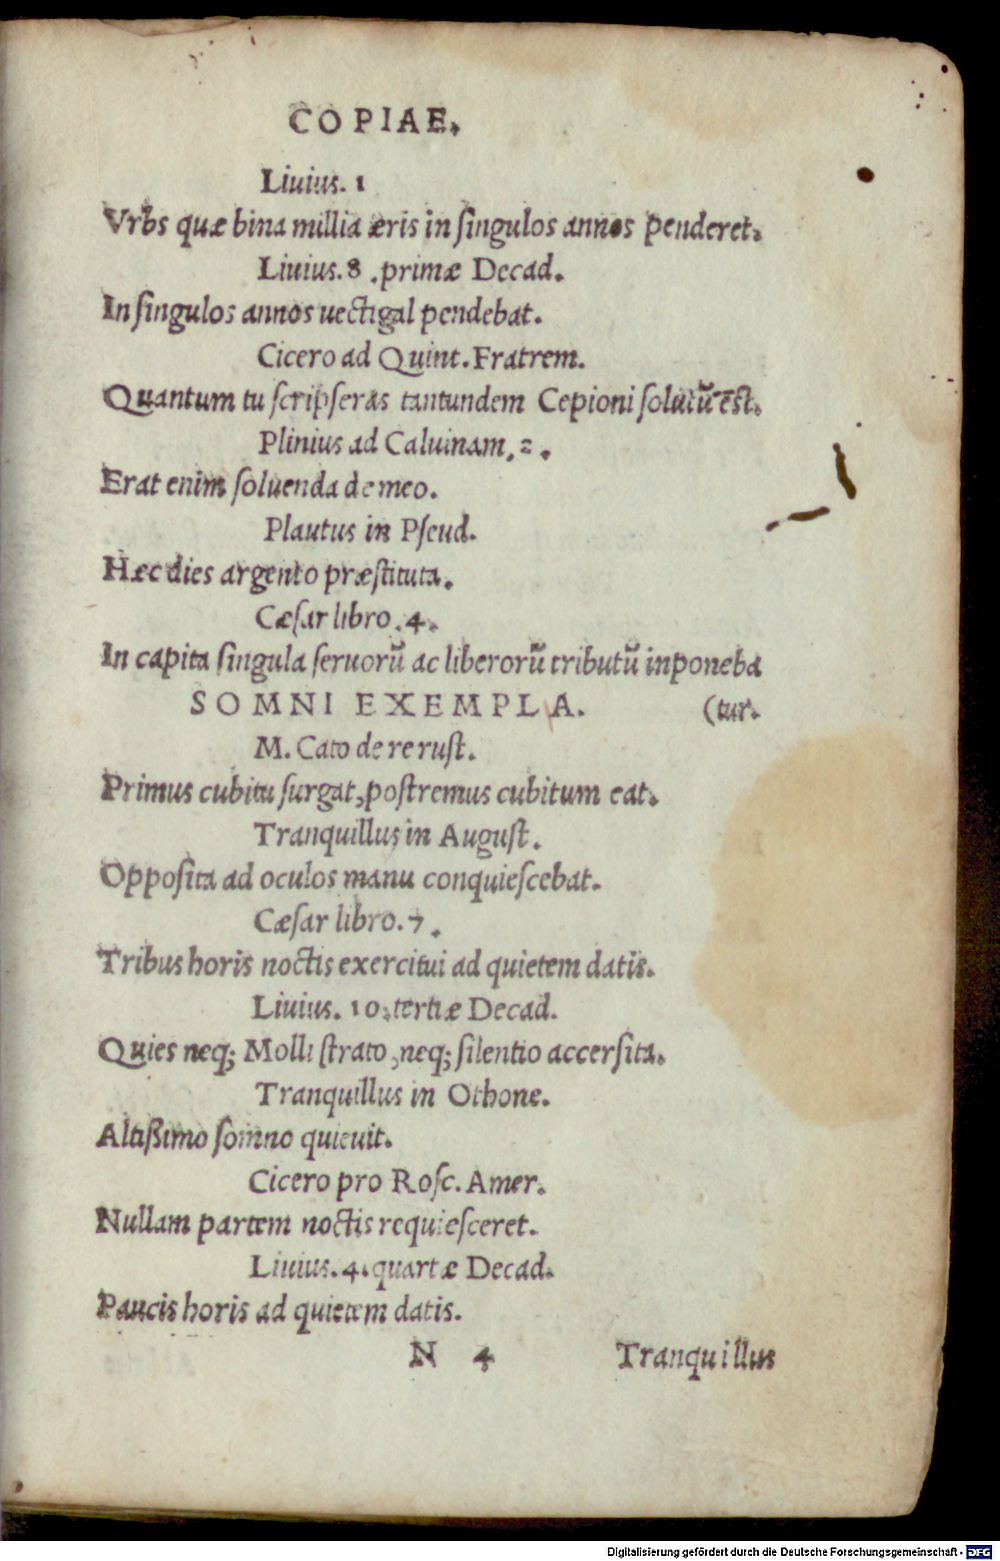 COPIAE.
Liuius. 1
Vrbs quæ bina millia æris in ſingulos annos penderet.
Liuius. 8 .primæ Decad.
In ſingulos annos uectigal pendebat.
Cicero ad Quint. Fratrem.
Quantum tu ſcripſeras tantundem Cepioni ſolutũ est.
Plinius ad Caluinam, 2 .
Erat enim ſoluenda de meo.
Plautus in Pſeud.
Hæc dies argento præſtituta.
Cæſar libro .4.
In capita ſingula ſeruorũ ac liberorũ tributũ inponeba
SOMNI EXEMPLA. (tur.
M. Cato de re ruſt.
Primus cubitu ſurgat, poſtremus cubitum eat.
Tranquillus in Auguſt.
Oppoſita ad oculos manu conquieſcebat.
Cæſar libro. 7 .
Tribus horis noctis exercitui ad quietem datis.
Liuius. 10, tertiæ Decad.
Quies neq; Molli ſtrato, neq; ſilentio accerſita.
Tranquillus in Othone.
Altißimo ſomno quieuit.
Cicero pro Roſc. Amer.
Nullam partem noctis requieſceret.
Liuius. 4. quartæ Decad.
Paucis horis ad quietem datis.
N 4 Tranquillus
Digitalisierung gefördert durch die Deutsche Forschungsgemeinschaft - DFG